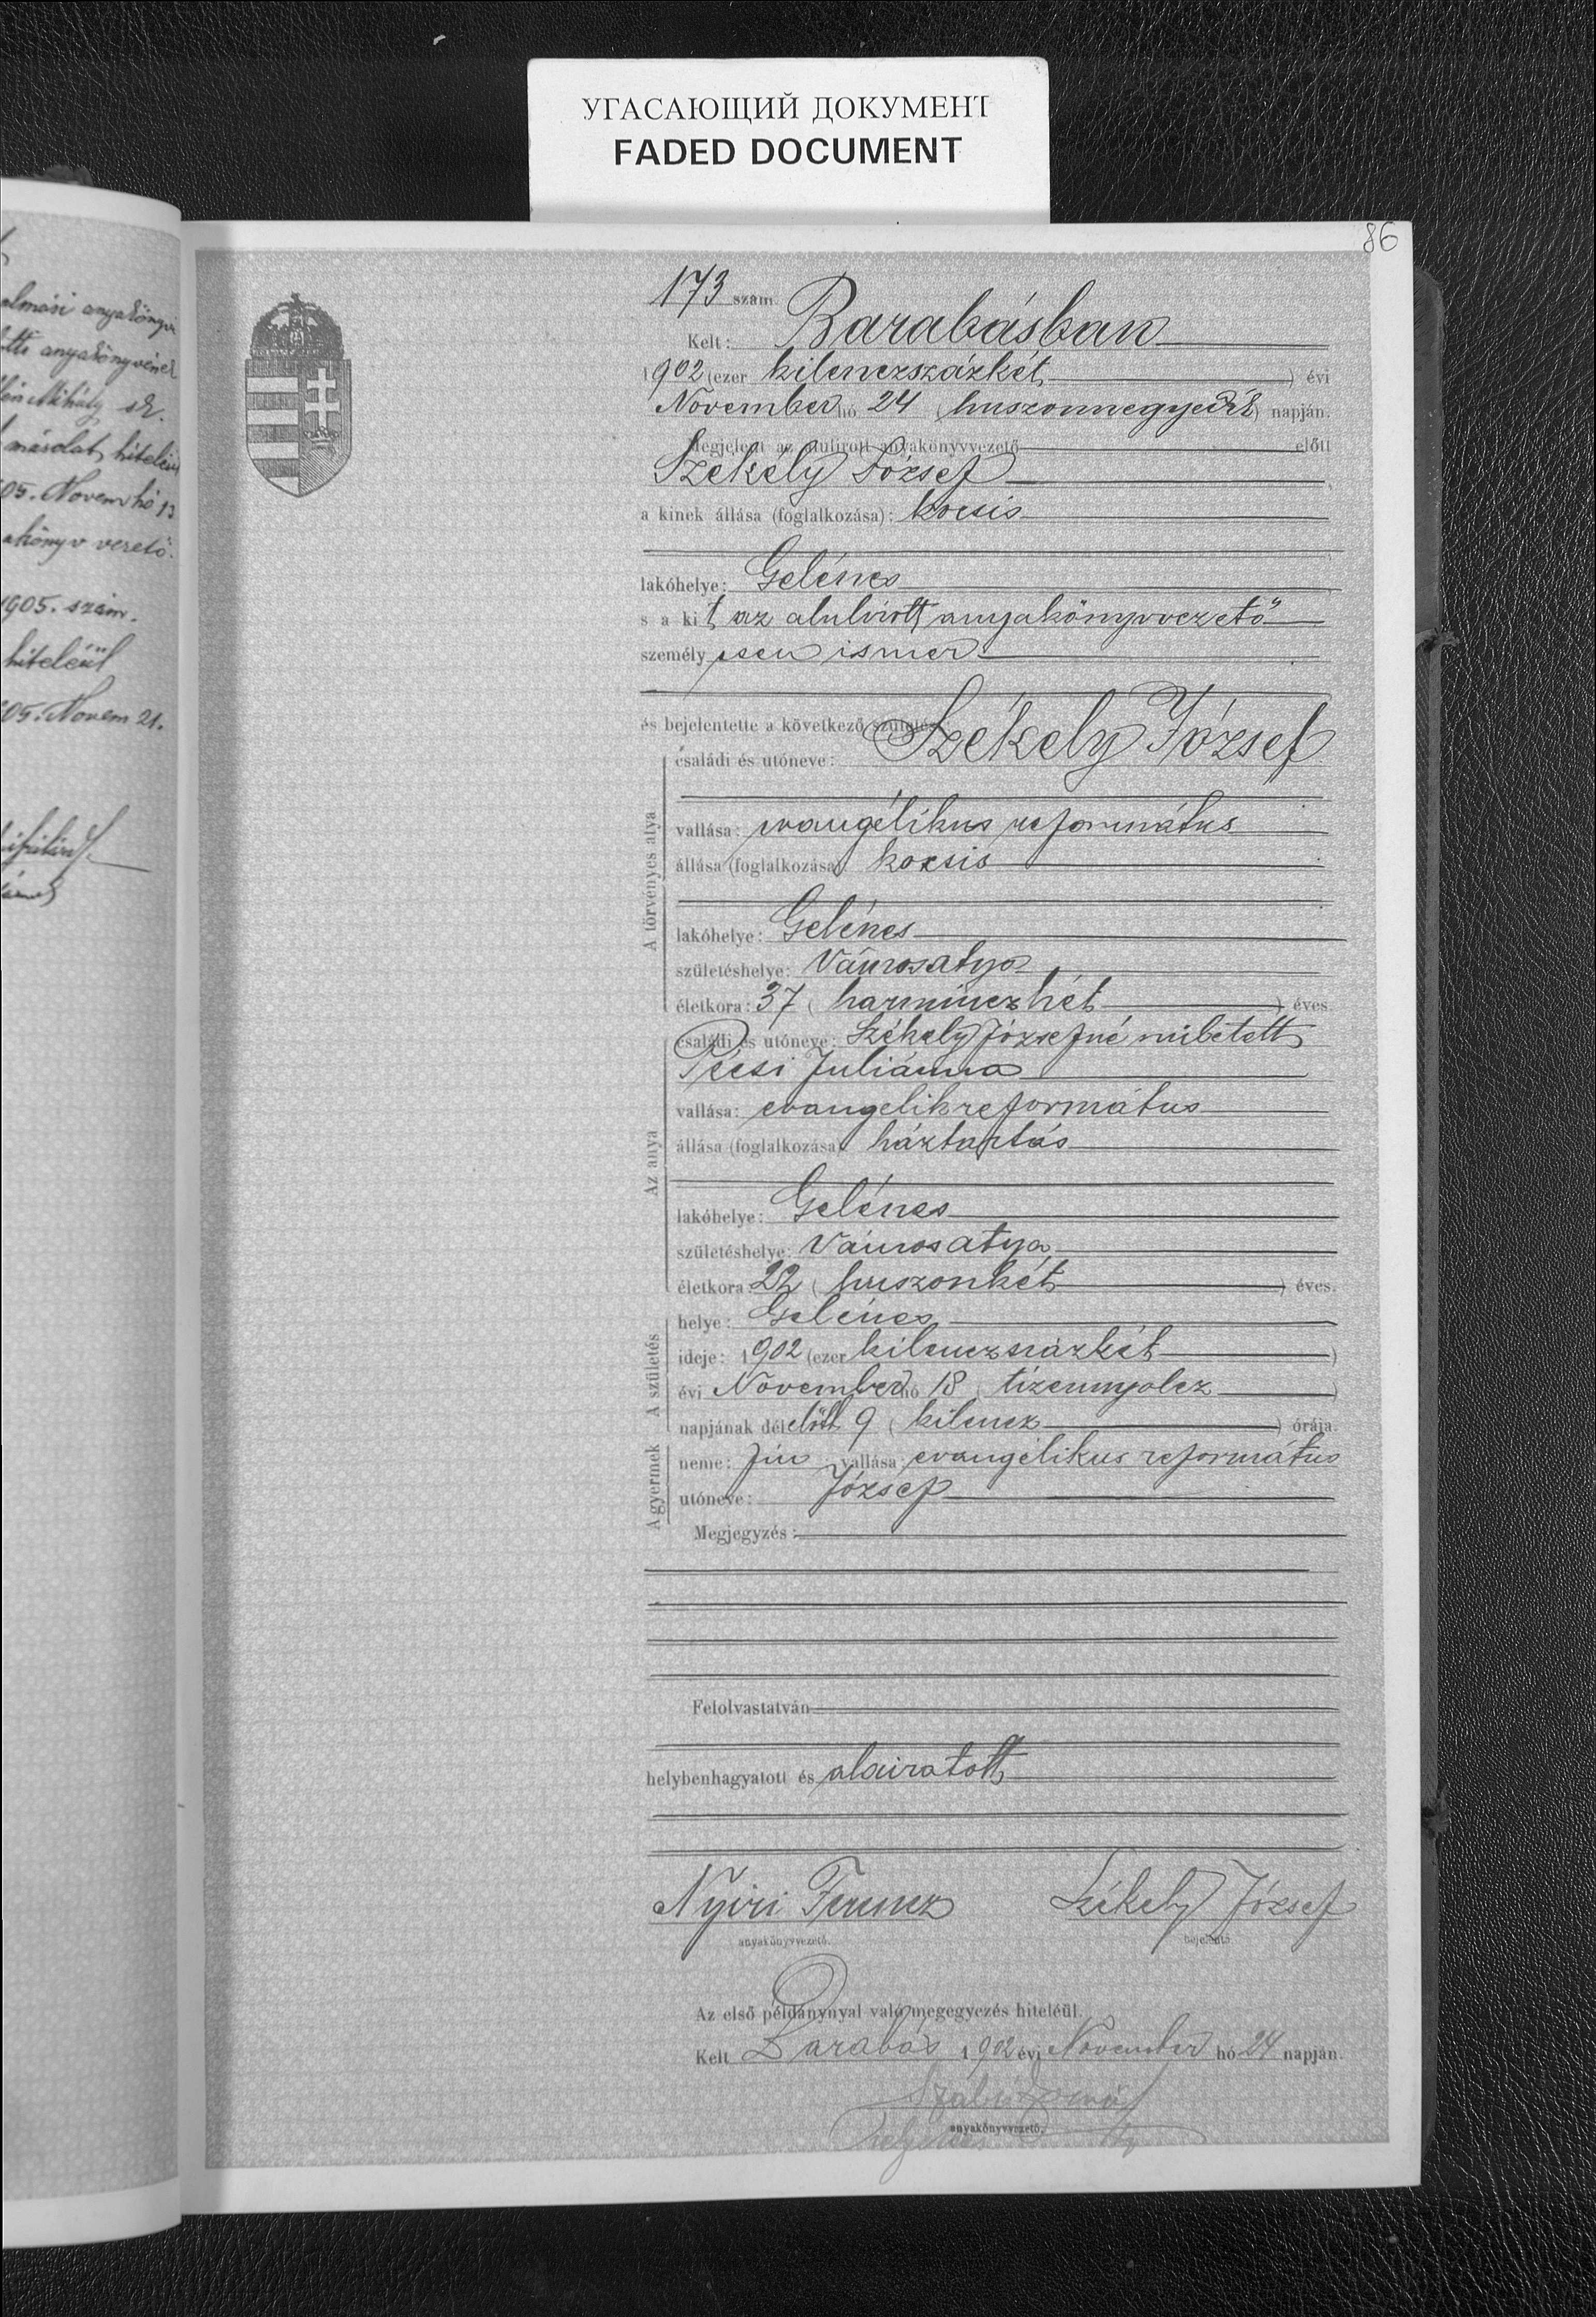 УГАСАЮЩИЙ ДОКУМЕНТ
FADED DOCUMENT
86
almási anyakönyvi
anyakönyvének
Mihály sk.
másolat hiteléül
05. Novem hó 13
akönyv vezető.
1905. szám.
hiteléül
05. Novem 21.
173 szám.
Kelt: Barabásban
1902 (ezer kilenczszázkét) évi
November hó 24 (huszonnegyedik) napján.
Megjelent az alulirott anyakönyvvezető előtt
Székely József
a kinek állása (foglalkozása): kocsis
lakóhelye: Gelénes
s a kit az alulírott anyakönyvvezető
személyesen ismer
és bejelentette a következő születést
A törvényes atya
családi és utóneve: Székely József
vallása: evangélikus református
állása (foglalkozása): kocsis
lakóhelye: Gelénes
születéshelye: Vámosatya
életkora: 37 (harminczhét) éves.
Az anya
családi és utóneve: Székely Józsefné született
Pécsi Juliánna
vallása: evangelik református
állása (foglalkozása): háztartás
lakóhelye: Gelénes
születéshelye: Vámosatya
életkora: 22 (huszonkét) éves.
A születés
helye: Gelénes
ideje: 1902 (ezer kilenczszázkét)
évi November hó 18 (tizennyolcz)
napjának délelőtt 9 (kilencz) órája.
A gyermek
neme: fiu vallása: evangélikus református
utóneve: József
Megjegyzés:
Felolvastatván
helybenhagyatott és aláiratott
Nyiri Ferencz Székely József
anyakönyvvezető. bejelentő.
Az első példánynyal való megegyezés hiteléül.
Kelt Barabás 1902 évi November hó 24 napján.
Szabó
anyakönyvvezető.